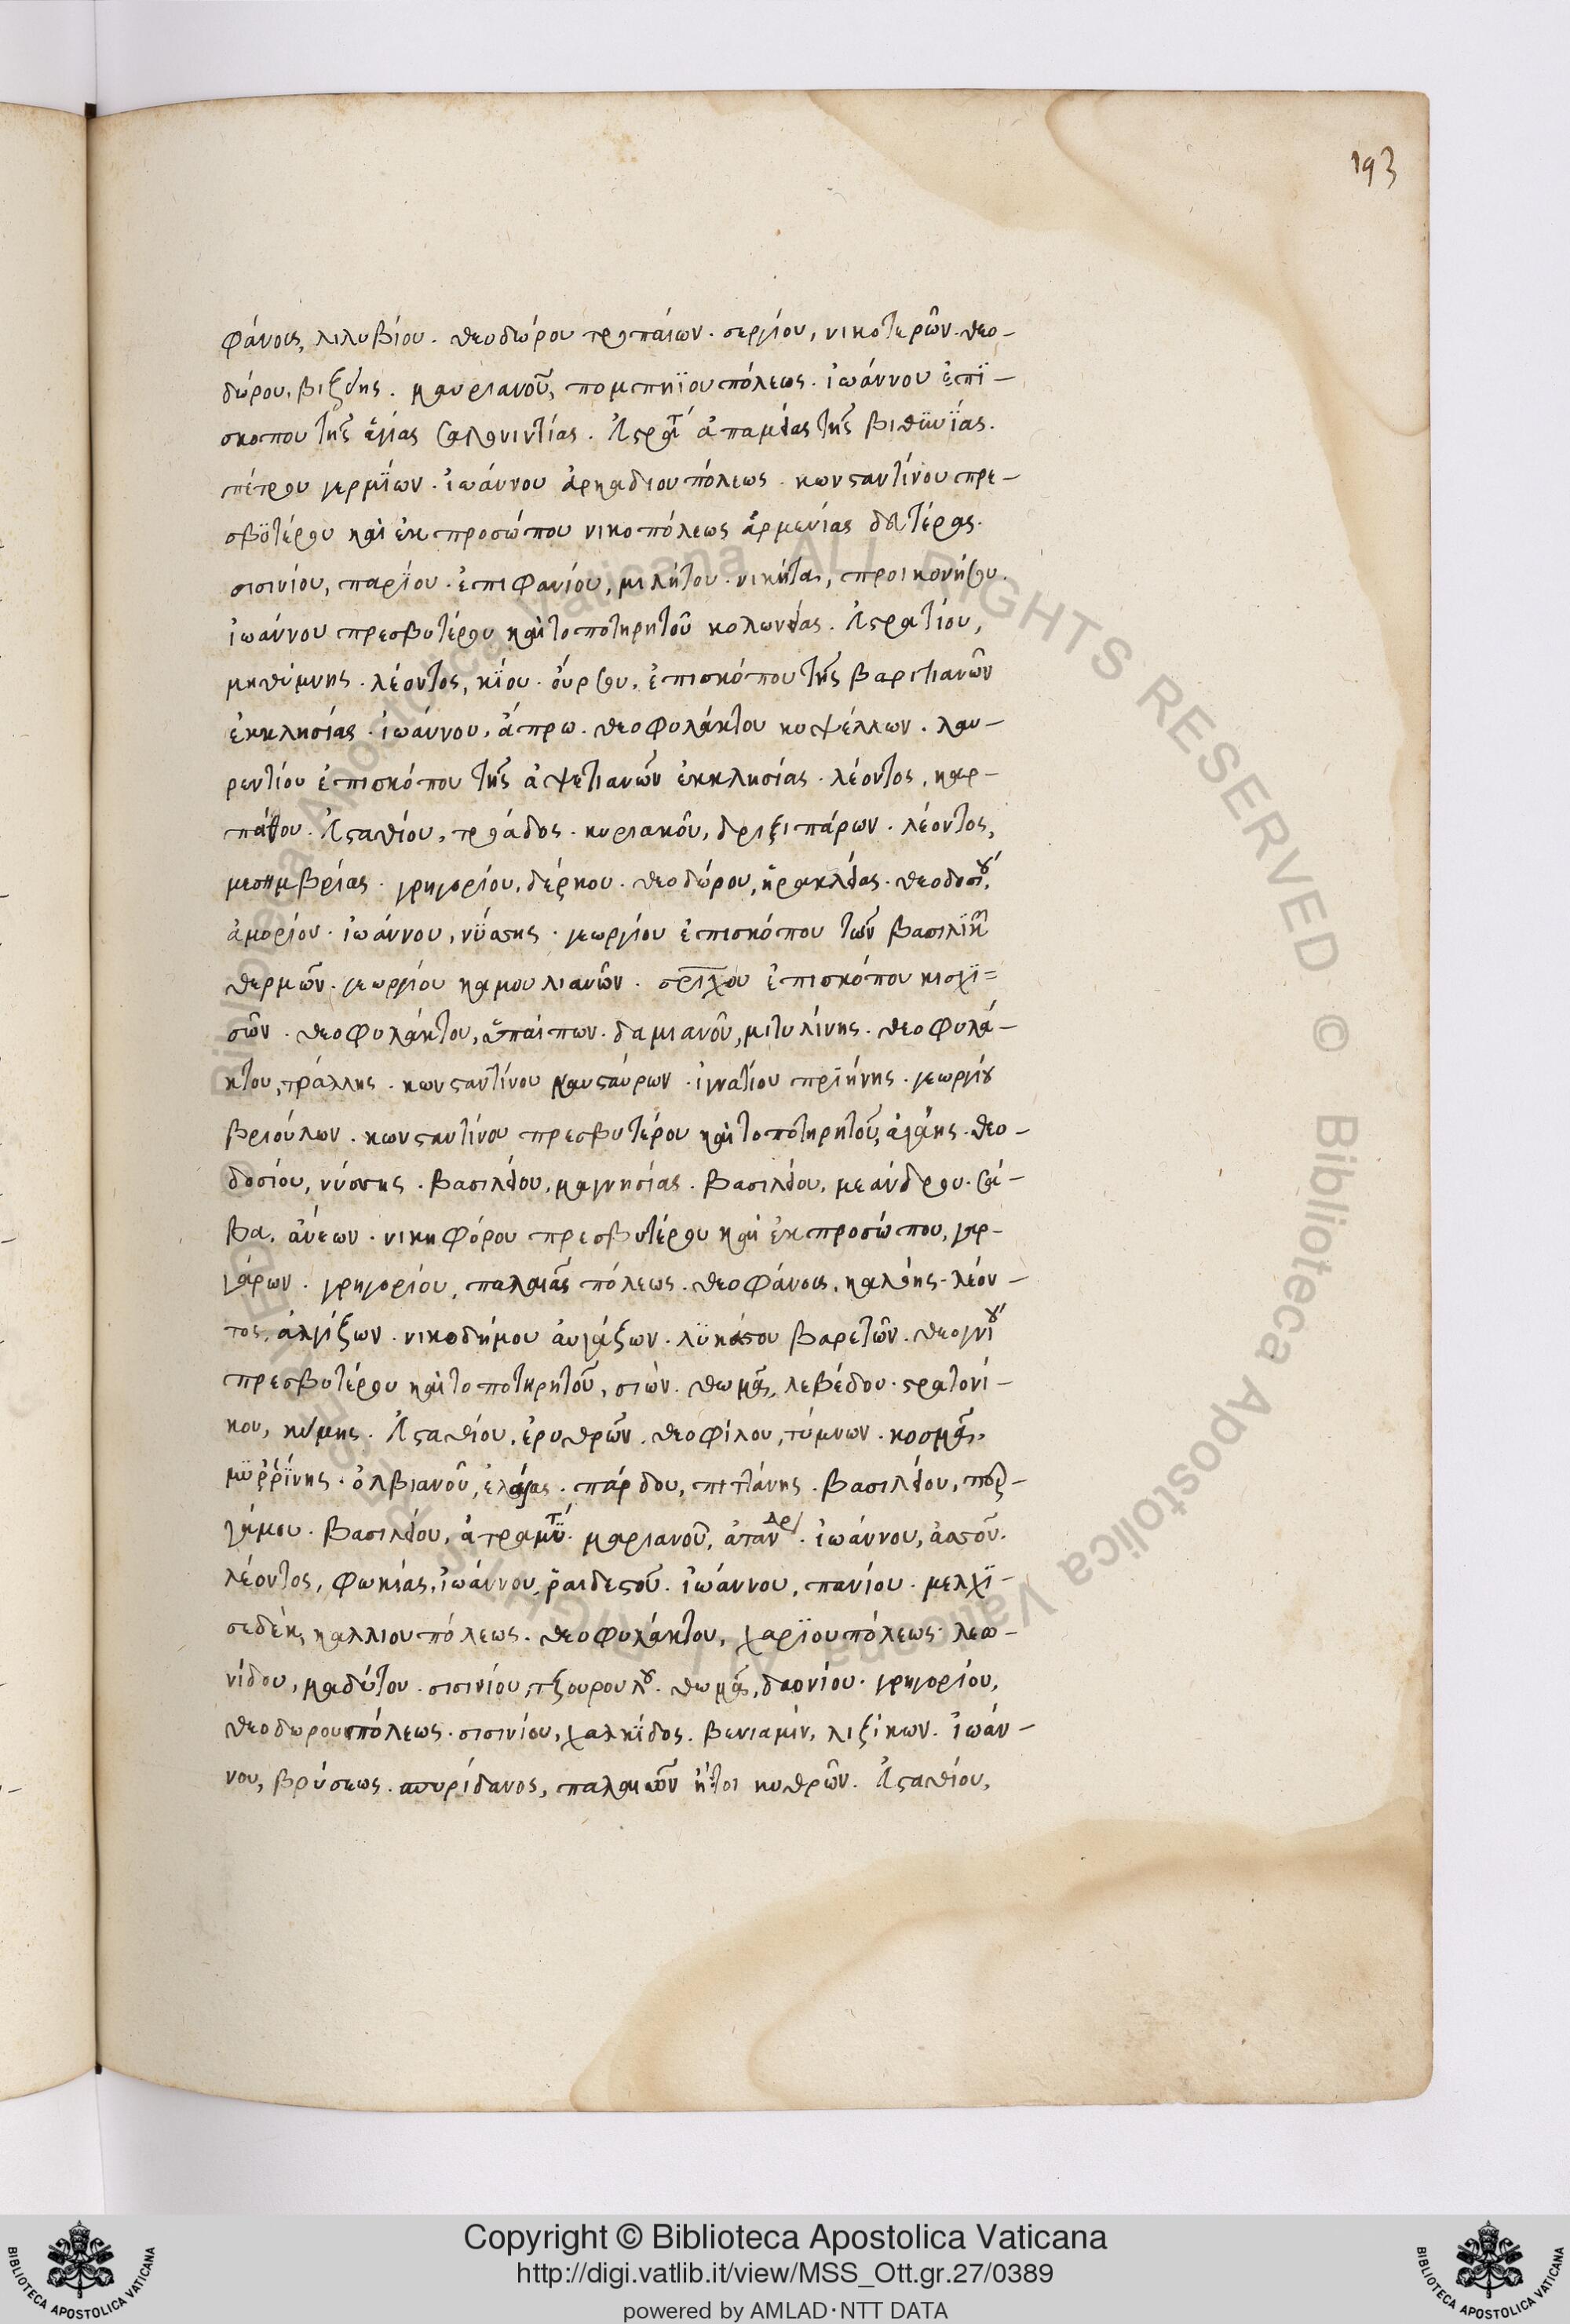 193
φάνους, λιλυβίου. θεοδώρου τροπαίων. σεργίου, νικοτερῶν. θεο-
δώρου, βιζύης. μαυριανοῦ, πομπηϊουπόλεως. ἰωάννου ἐπϊ-
σκοπου τῆς ἁγίας σαλουιντίας. εὐστρατί ἀπαμείας τῆς βιθϋνϊάς.
πέτρου γερμΐων. ἰωάννου ἀρκαδιουπόλεως. κωνσταντίνου πρε-
σβϋτέρου καὶ ἐκπροσώπου νικοπόλεως ἀρμενίας δευτέρας.
σισινίου, παρΐου. ἐπιφανίου, μιλήτου. νικήτα, προικονήσου.
ἰωάννου πρεσβυτέρου καὶ τοποτηρητοῦ κολωνείας. εὐστρατίου,
μηθύμνης. λέοντος, κΐου. οὔρσου, ἐπισκόπου τῆς βαριτιανῶν
ἐκκλησίας. ἰωάννου, ἄπρω. θεοφυλάκτου κυψέλλων. λαυ-
ρεντίου ἐπισκόπου τῆς ἀψετιανῶν ἐκκλησίας. λέοντος, καρ-
πάθου. εὐσταθίου, τρῳάδος. κυριακοῦ, δριζιπάρων. λέοντος,
μεσημβρίας. γρηγορίου, δέρκου. θεοδώρου, ἡρακλείας. θεοδοσίου,
ἀμορίου. ἰωάννου, νΰσης. γεωργίου ἐπισκόπου τῶν βασιλϊκῶν
θερμῶν. γεωργίου καμουλιανῶν. σρίχου ἐπισκόπου κισχϊ=
σῶν. θεοφυλάκτου, ὑπαίπων. δαμιανοῦ, μιτυλίνης. θεοφυλά-
κτου, τράλλης. κωνσταντίνου καυσταύρων. ἰγνατίου πρϊήνης. γεωργίου
βριούλων. κωνσταντίνου πρεσβυτέρου καὶ τοποτηρητοῦ, ἀγάης. θεο-
δοσίου, νύσσης. βασιλείου, μαγνησίας. βασιλείου, μεάνδρου. σά-
βα, ἀνέων. νικηφόρου πρεσβυτέρου καὶ ἐκπροσώπου, γαρ-
γάρων. γρηγορίου, παλαιᾶς πόλεως. θεοφάνους, καλόης. λέον-
τος, ἀλγίζων. νικοδήμου αὐγάζων. λϋκάστου βαρετῶν. θεογνίου
πρεσβυτέρου καὶ τοποτηρητοῦ, σιών. θωμᾶ, λεβέδου. στρατονί-
κου, κύμης. εὐσταθίου, ἐρυθρῶν. θεοφίλου, τύμνων. κοσμᾶ,
μϋῤῥΐνης. ὀλβιανοῦ, ἐλαίας. πάρδου, πιτάνης. βασιλείου, περ-
γάμου. βασιλείου, ἀτραμϋτ. μαριανοῦ, ἀτανδρ. ἰωάννου, ἀσσοῦ.
λέοντος, φωκίας, ἰωάννου, ῥαιδεστοῦ. ἰωάννου, πανίου. μελχϊ-
σεδέκ, καλλιουπόλεως. θεοφυλάκτου, χαρϊουπόλεως. λεω-
νίδου, μαδύτου. σισινίου, τζουρουλοῦ. θωμᾶ, δαονίου. γρηγορίου,
θεοδωρουπόλεως. σισινίου, χαλκΐδος. βενιαμίν, λιζίκων. ἰωάν-
νου, βρύσεως. σπυρίδωνος, παλαιῶν ἤτοι κυθρῶν. εὐσταθίου,
Copyright © Biblioteca Apostolica Vaticana
http://digi.vatlib.it/view/MSS_Ott.gr.27/0389
powered by AMLAD·NTT DATA